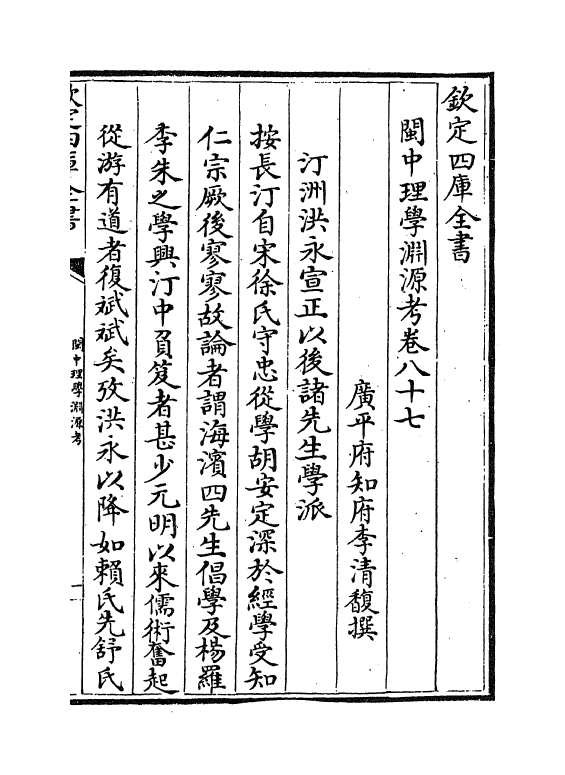 欽定四庫全書
閩中理學淵源考卷八十七
廣平府知府李清馥撰
汀洲洪永宣正以後諸先生學派
按長汀自宋徐氏守忠從學胡安定深於經學受知
仁宗厥後寥寥故論者謂海濱四先生倡學及楊羅
李朱之學興汀中負笈者甚少元明以來儒術奮起
從游有道者復斌斌矣攷洪永以降如賴氏先舒氏
欽定四庫全書
閩中理學淵源考
一